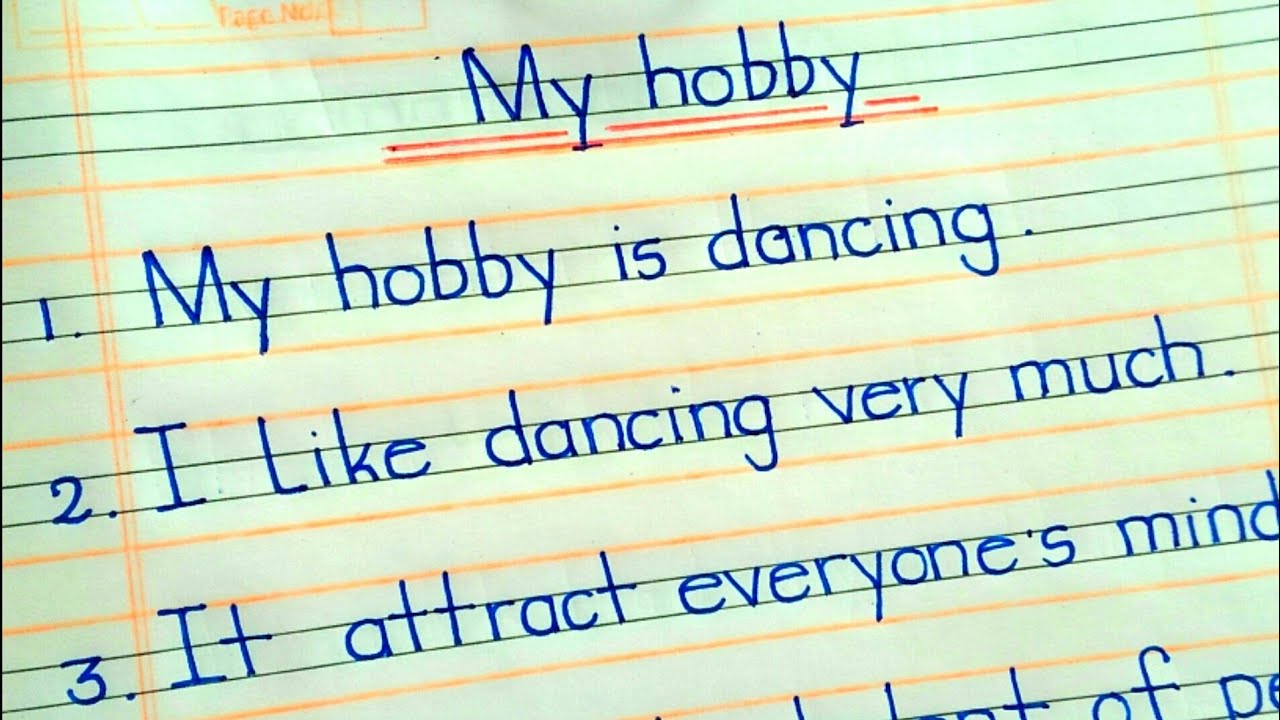 Page No.
My hobby
1. My hobby is dancing.
2. I like dancing very much.
3. It attract everyone's mind
of